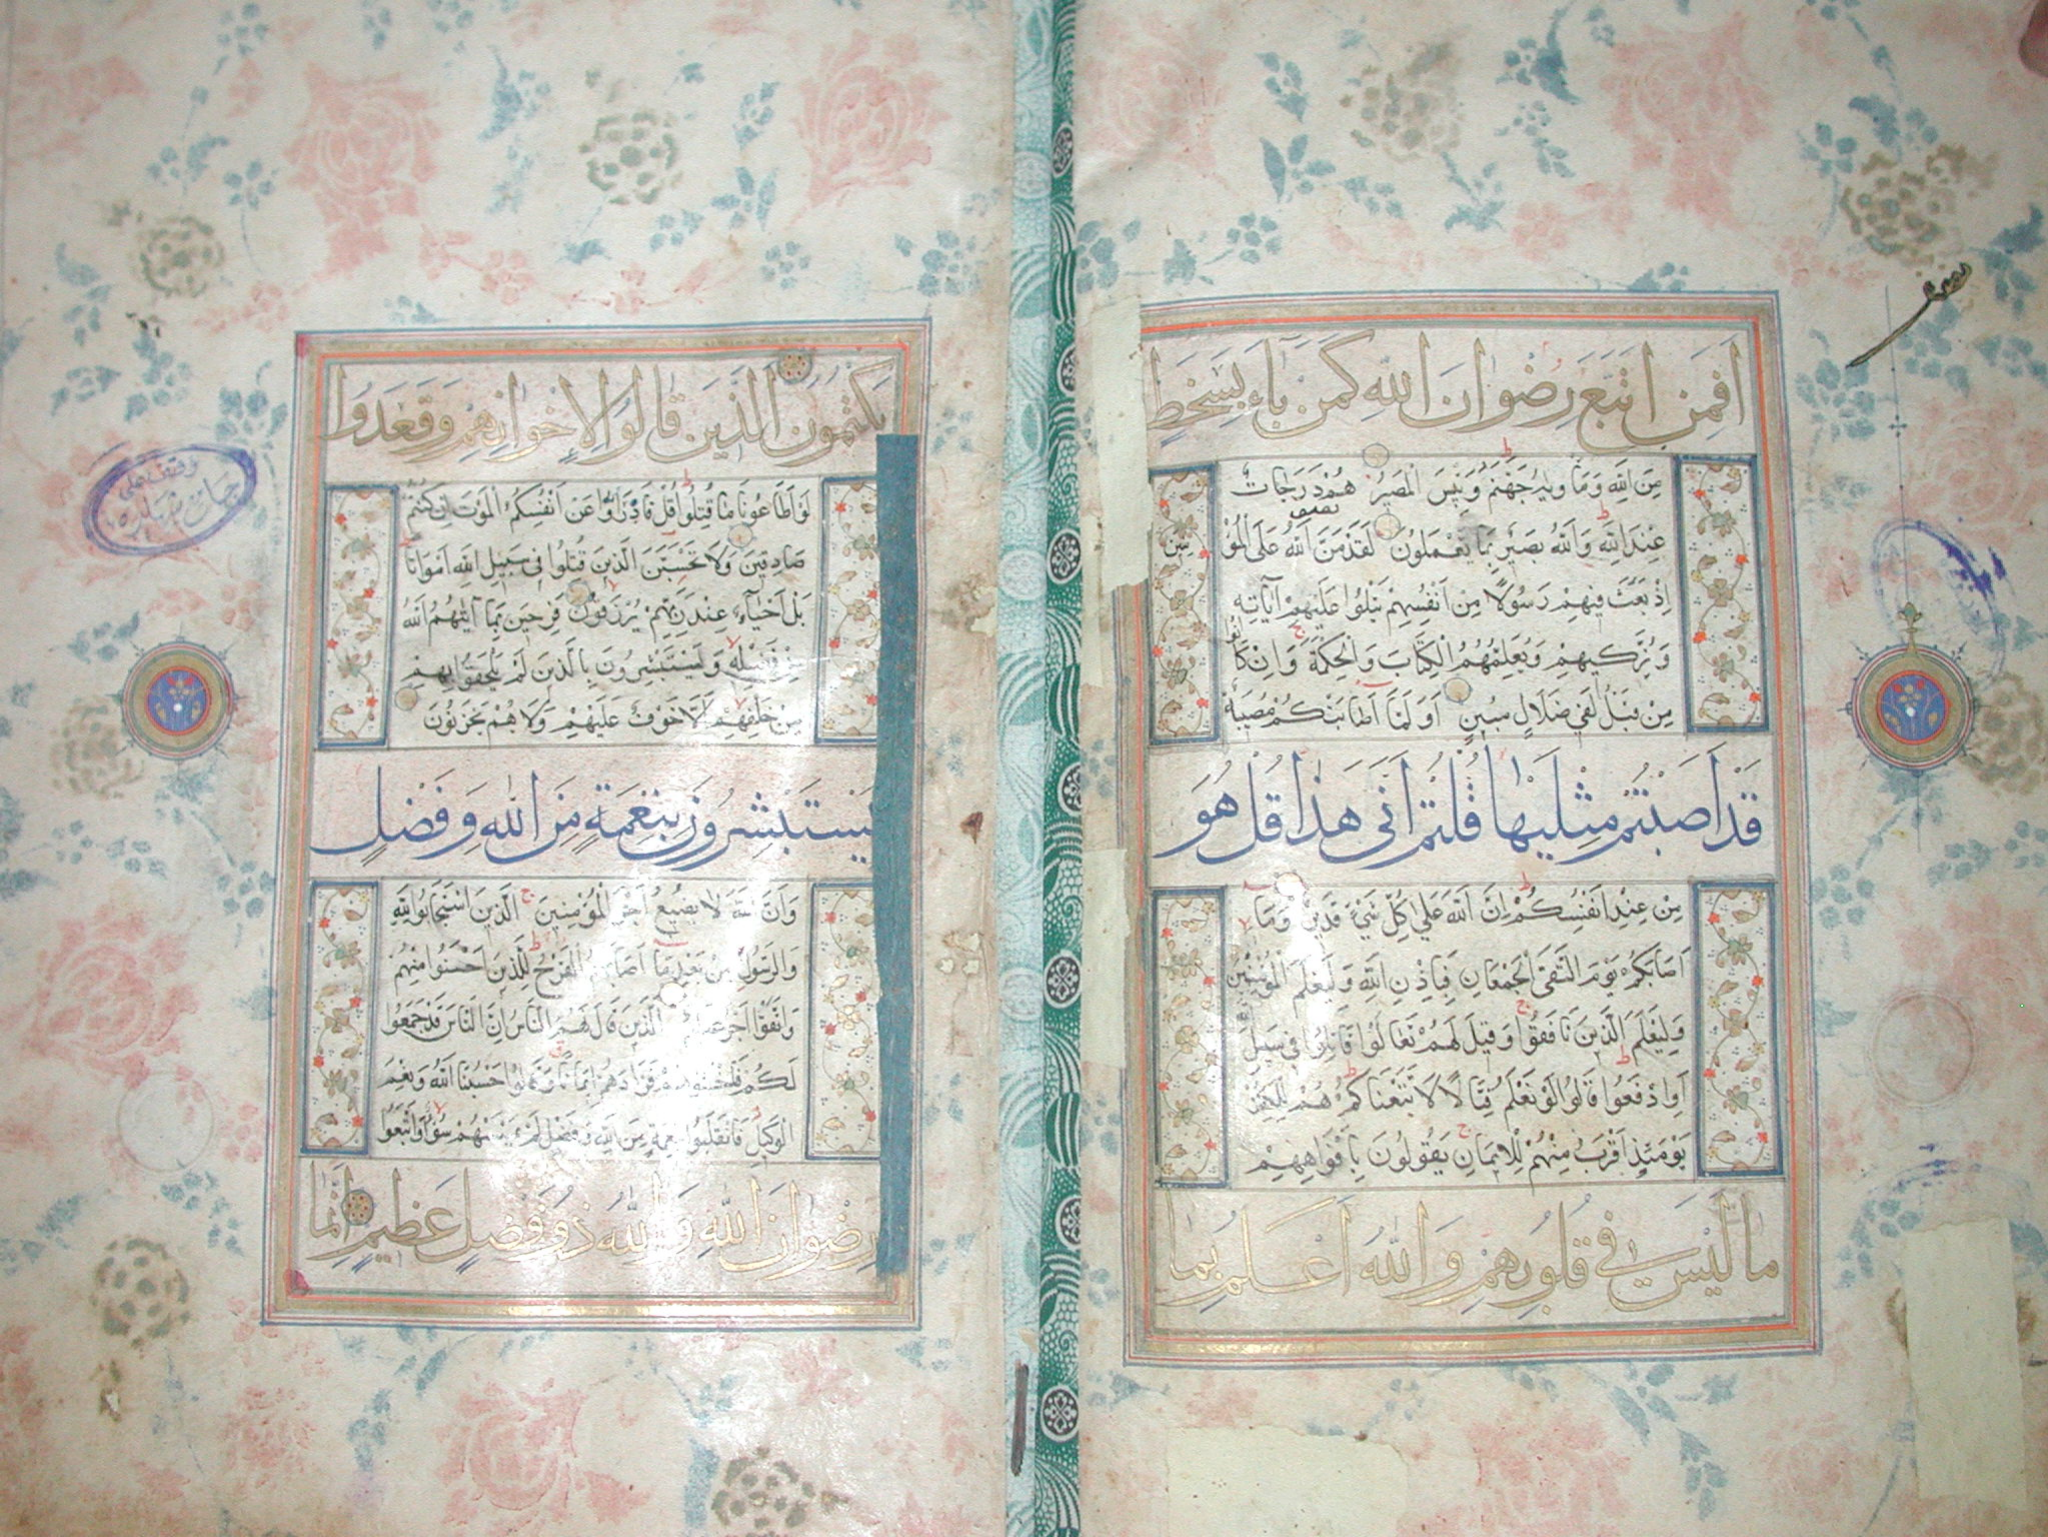 افمن اتبع رضوان الله كمن باء بسخط
من الله وما ويه جهنم وبئس المصير هم درجات
عند الله والله بصير بما يعملون لقد من الله على المؤمنين
اذ بعث فيهم رسولا من انفسهم يتلوا عليهم آياته
ويزكيهم ويعلمهم الكتاب والحكمة وان كانوا
من قبل لفي ضلال مبين اولما اصابتكم مصيبة
قد اصبتم مثليها قلتم انى هذا قل هو
من عند انفسكم ان الله على كل شيء قدير وما
اصابكم يوم التقى الجمعان فباذن الله وليعلم المؤمنين
وليعلم الذين نافقوا وقيل لهم تعالوا قاتلوا في سبيل
اوادفعوا قالوا لو نعلم قتالا لاتبعناكم هم للكفر
يومئذ اقرب منهم للايمان يقولون بافواههم
ما ليس في قلوبهم والله اعلم بما
يكتمون الذين قالوا لاخوانهم وقعدوا
لو اطاعونا ما قتلوا قل فادرؤا عن انفسكم الموت ان كنتم
صادقين ولا تحسبن الذين قتلوا في سبيل الله امواتا
بل احياء عند ربهم يرزقون فرحين بما آتيهم الله
من فضله ويستبشرون بالذين لم يلحقوا بهم
من خلفهم الا خوف عليهم ولا هم يحزنون
يستبشرون بنعمة من الله وفضل
وان الله لا يضيع اجر المؤمنين الذين استجابوا لله
والرسول من بعد ما اصابهم القرح للذين احسنوا منهم
واتقوا اجر عظيم الذين قال لهم الناس ان الناس قد جمعوا
لكم فاخشوهم فزادهم ايمانا وقالوا حسبنا الله ونعم
الوكيل فانقلبوا بنعمة من الله وفضل لم يمسسهم سوء واتبعوا
رضوان الله والله ذو فضل عظيم انما